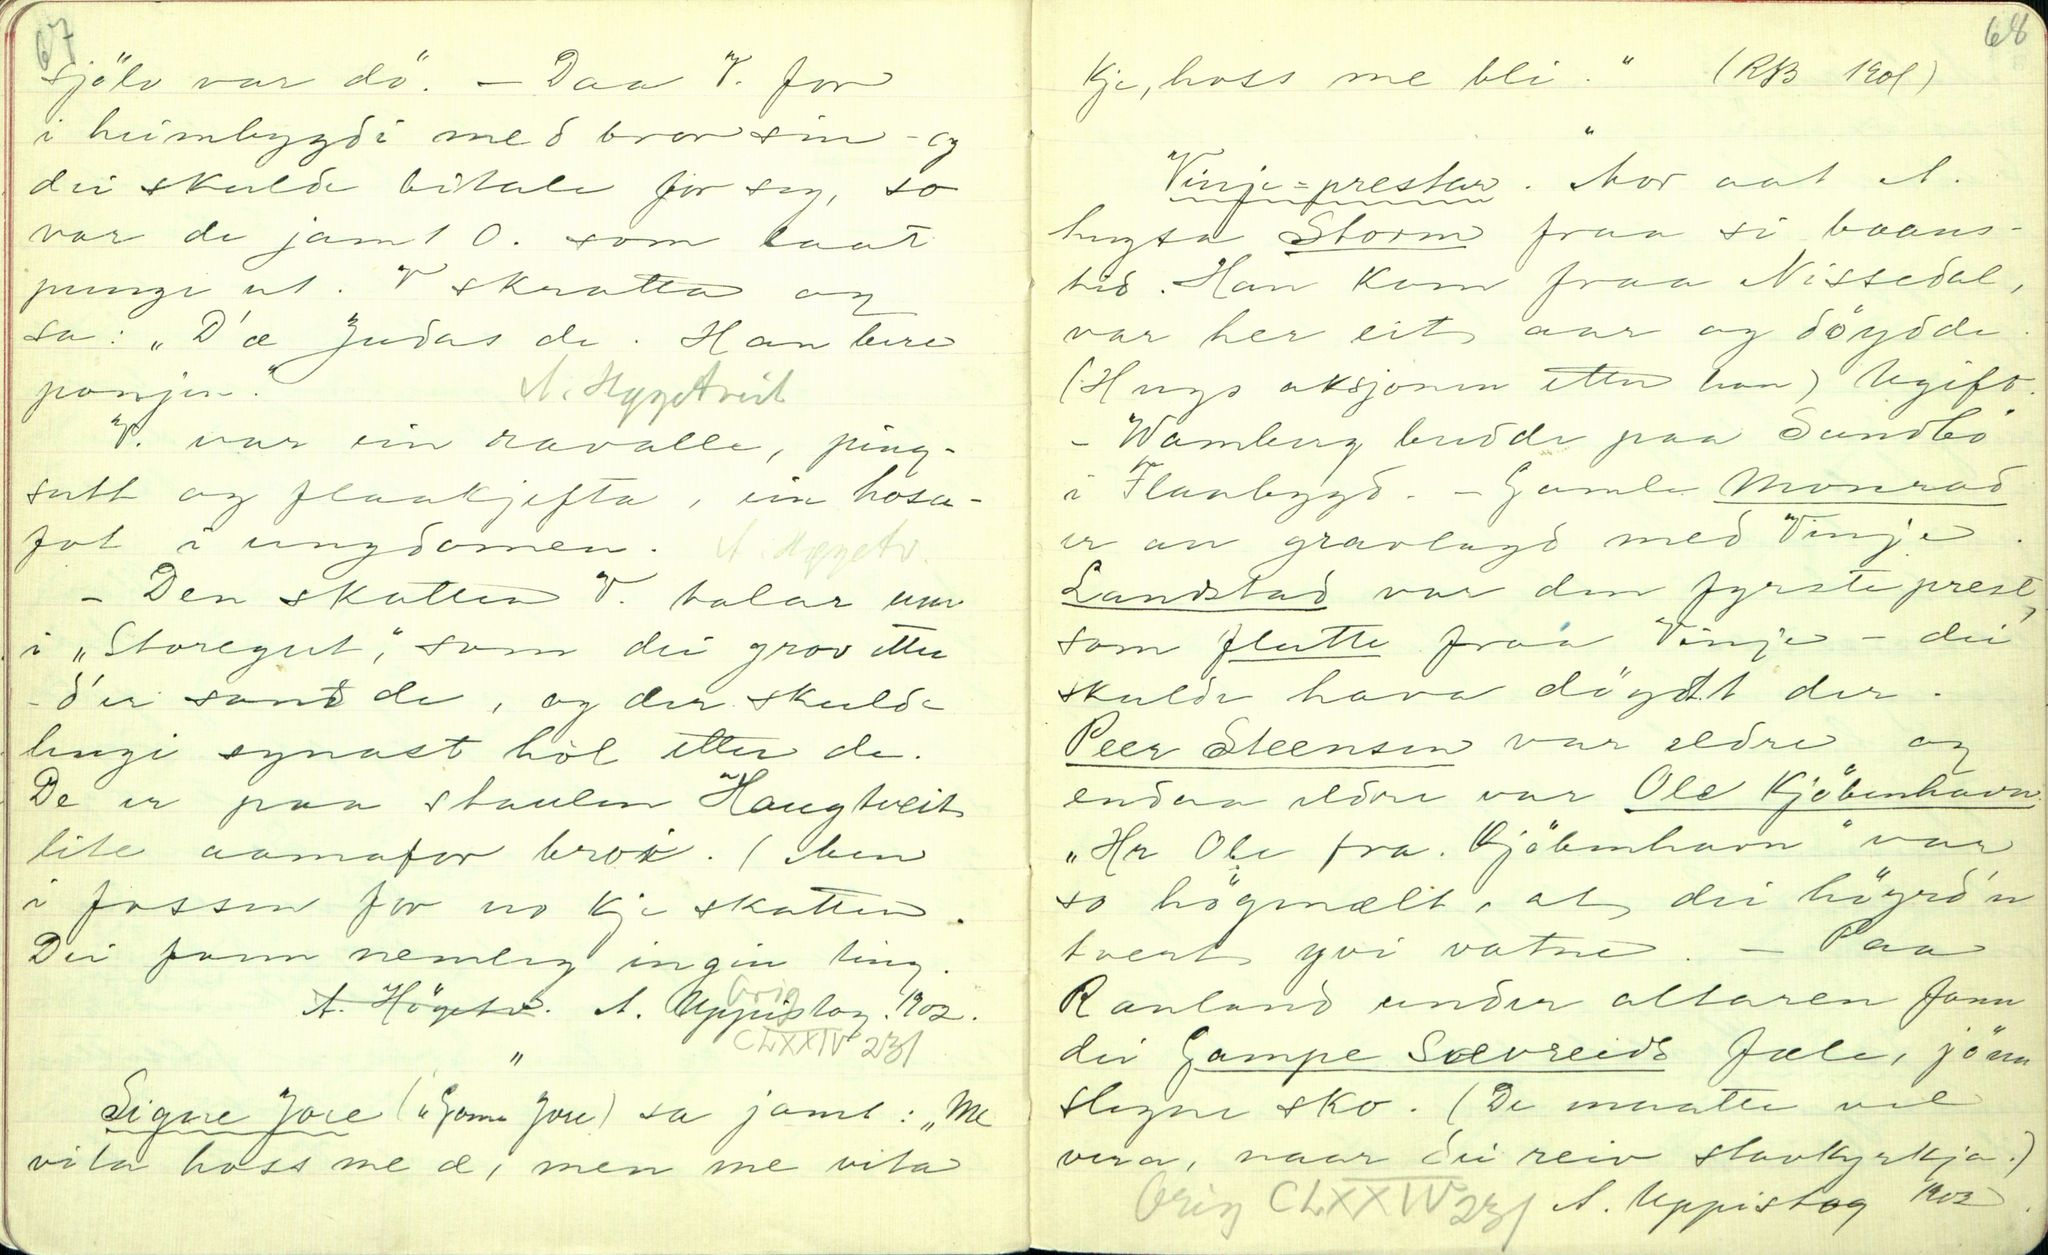 67
sjölv var dö". – Daa V. for
i heimbygdi med bror sin – og
dei skulde bitale for seg, so
var de jamt O. som laat
pungi ut. V skratta og
sa: „D'æ Judas de. Han bere
ponjen."
A. Høgetveit
V. var ein ravalle, ping-
sutt og flaakjefta, ein hosu-
fot i ungdomen. A. Høgetv.
– Den skatten V. talar um
i „Storegut", som dei grov etter
– d'er sant de, og der skulde
lengi synast hòl etter de.
De er paa staulen Haugtveit
lite aamafor broi. (Men
i fossen for no kje skatten.
Dei fann nemleg ingin ting.
A. Högetv. A. Uppistog. 1902.
Orig
CLXXIV 231
"
Signe Jore („Gome Jore) sa jamt: „Me
vita hoss me æ, men me vita
68
kje, hoss me bli." (RB 1901)
"
Vinje-prestar. Mor aat A.
hugsa Storm fraa si baans-
tid. Han kom fraa Nissedal,
var her eit aar og döydde.
(Hugs aksjonen etter han) Ugift.
– Wamberg budde paa Sundbö
i Flaabygd. – Gamle Monrad
er an gravlagd med Vinje.
Landstad var den fyrste prest,
som flutte fraa Vinje – dei
skulde hava döydt der.
Peer Steensen var eldre og
endaa eldre var Ole Kjöbenhavn.
„Hr Ole fra Kjöbenhavn" var
so högmælt, at dei höyrd'n
tvert yvi vatne. – Paa
Rauland under altaren fann
dei Gampe Sævreids fæle, jönn
slegne sko. (De maatte vel
vera, naar dei reiv stavkyrkja.)
Orig CLXXIV 231 A. Uppistog 1902.